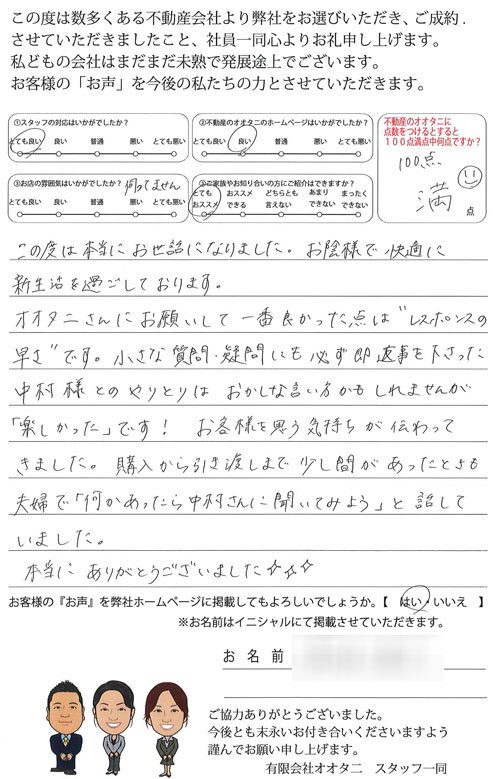 この度は数多くある不動産会社より弊社をお選びいただき、ご成約.
させていただきましたこと、社員一同心よりお礼申し上げます。
私どもの会社はまだまだ未熟で発展途上でございます。
お客様の「お声」を今後の私たちの力とさせていただきます。
①スタッフの対応はいかがでしたか?
とても良い 良い 普通 悪い とても悪い
②不動産のオオタニのホームページはいかがでしたか?
とても良い 良い 普通 悪い とても悪い
③お店の雰囲気はいかがでしたか? 伺ってません
とても良い 良い 普通 悪い とても悪い
②ご家族やお知り合いの方にご紹介はできますか?
とてもオススメ オススメできる どちらとも言えない あまりできない まったくできない
不動産のオオタニに
点数をつけるとすると
100点満点中何点ですか?
100点
満 点
この度は本当にお世話になりました。お陰様で快適に
新生活を過ごしております。
オオタニさんにお願いして一番良かった点は"レスポンスの
早さ"です。小さな質問・疑問にも必ず即返事を下さった
中村様とのやりとりは おかしな言い方かもしれませんが
「楽しかった」です! お客様を思う気持ちが伝わって
きました。購入から引き渡しまで少し間があったときも
夫婦で「何かあったら中村さんに聞いてみよう」と話して
いました。
本当に ありがとうございました☆☆☆
お客様の『お声』を弊社ホームページに掲載してもよろしいでしょうか。【 はい・いいえ 】
※お名前はイニシャルにて掲載させていただきます。
お 名 前
ご協力ありがとうございました。
今後とも末永いお付き合いくださいますよう
謹んでお願い申し上げます。
有限会社オオタニ スタッフ一同